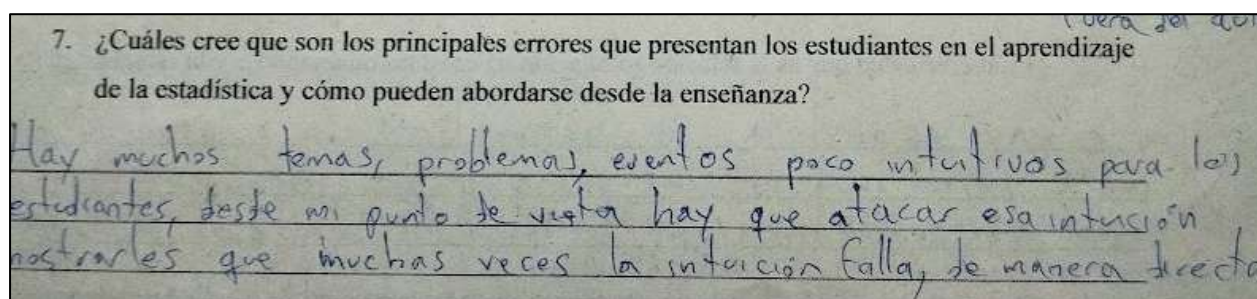 fuera del
7. ¿Cuáles cree que son los principales errores que presentan los estudiantes en el aprendizaje
de la estadística y cómo pueden abordarse desde la enseñanza?
Hay muchos temas, problemas, eventos poco intuitivos para los
estudiantes, desde mi punto de vista hay que atacar esa intuición
mostrarles que muchas veces la intuición falla, de manera directa